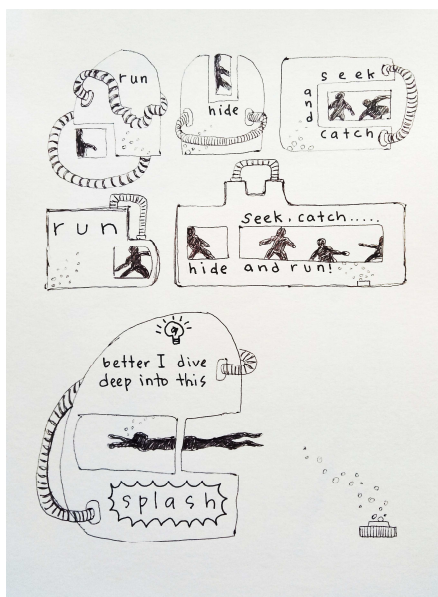 run
hide
seek
and
catch
run
seek, catch.....
hide and run!
better I dive
deep into this
splash